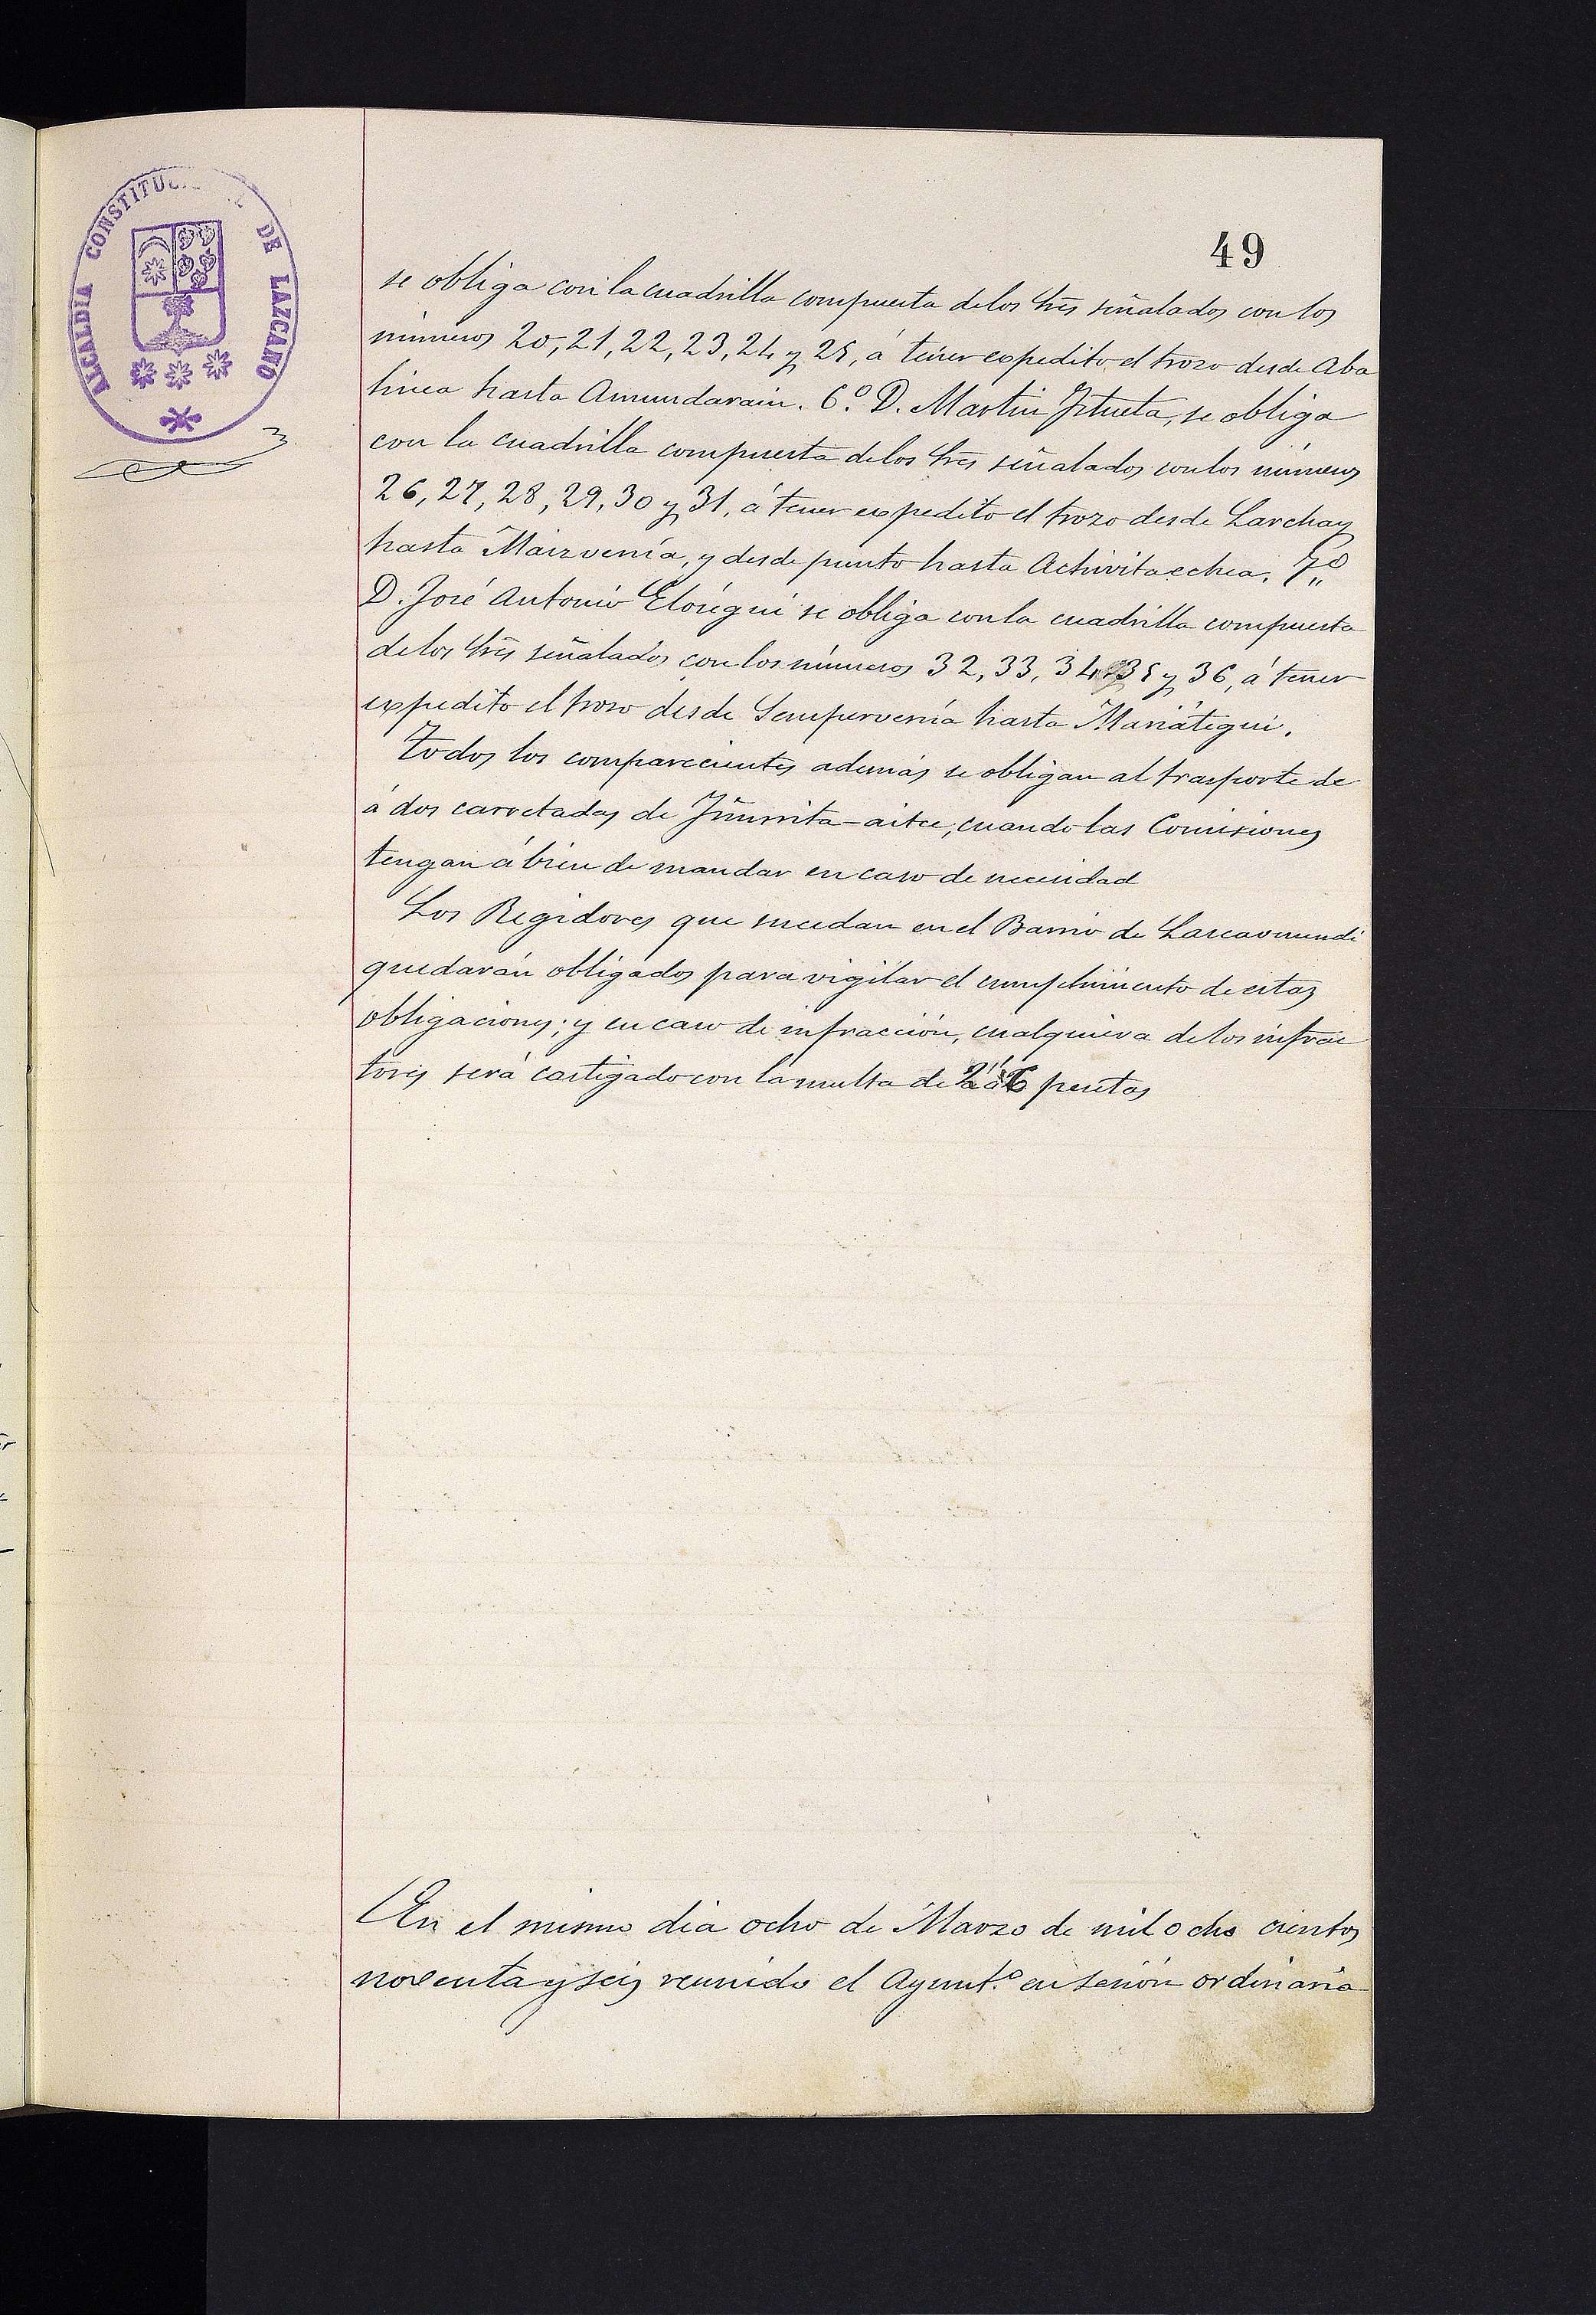 ALCALDIA CONSTITUC DE LAZCANO
49
se obliga con la cuadrilla compuesta de los Sres señalados con los
números 20, 21, 22, 23, 24 y 25, á tener expedito el trozo desde Aba
linea hasta Amundarain. 6.º D. Martin Iztueta, se obliga
con la cuadrilla compuesta de los Sres señalados con los números
26, 27, 28, 29, 30 y 31, á tener expedito el trozo desde Larchay
hasta Mairvenía, y desde punto hasta Achivitaechea. 7º
D. José Antonio Elósegui se obliga con la cuadrilla compuesta
de los Sres señalados con los números 32, 33, 34, 35 y 36, á tener
expedito el trozo desde Sempervenía hasta Mariátegui.
Todos los comparecientes además se obligan al trasporte de
á dos carretadas de cuando las Comisiones
tengan á bien de mandar en caso de necesidad
Los Regidores que sucedan en el Barrio de Lascaomendi
quedarán obligados para vigilar el cumplimiento de estas
obligaciones; y en caso de infracción, cualquiera de los infrac
tores será castigado con la multa de pesetas
En el mismo dia ocho de Marzo de mil ocho cientos
noventa y seis reunido el Ayunt.º en sesión ordinaria